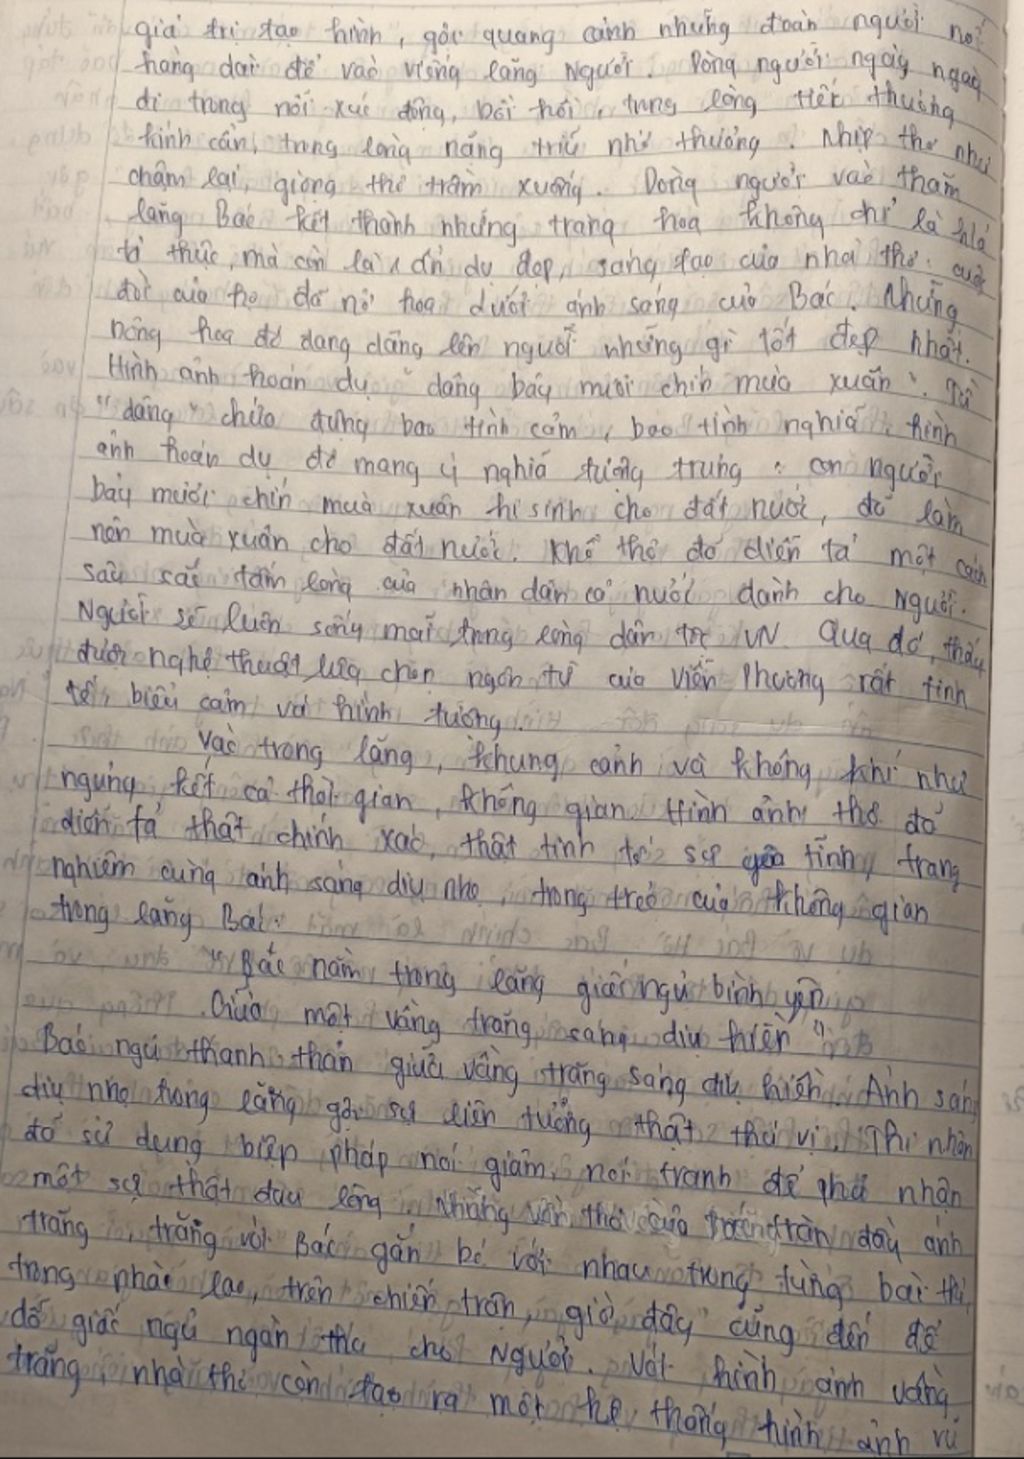 giá trị tạo hình, gợi quang cảnh những đoàn người nối
hàng dài để vào viếng lăng Người. Dòng người ngày ngày
đi trong nỗi xúc động, bồi hồi, trong lòng tiếc thương
kính cẩn, trong lòng nặng trĩu nhớ thương. Nhịp thơ như
chậm lại, giọng thơ trầm xuống. Dòng người vào thăm
lăng Bác kết thành những tràng hoa không chỉ là h/ả
tả thực, mà còn là 1 ẩn dụ đẹp, sáng tạo của nhà thơ: cuộc
đời của họ đã nở hoa dưới ánh sáng của Bác. Những
bông hoa đó đang dâng lên người những gì tốt đẹp nhất.
Hình ảnh hoán dụ "dâng bảy mươi chín mùa xuân". Từ
"dâng" chứa đựng bao tình cảm, bao tình nghĩa, hình
ảnh hoán dụ đó mang ý nghĩa tượng trưng: con người
bảy mươi chín mùa xuân hi sinh cho đất nước, đã làm
nên mùa xuân cho đất nước. Khổ thơ đã diễn tả một cách
sâu sắc tấm lòng của nhân dân cả nước dành cho Người.
Người sẽ luôn sống mãi trong lòng dân tộc VN. Qua đó, thấy
được nghệ thuật lựa chọn ngôn từ của Viễn Phương rất tinh
tế, biểu cảm và hình tượng.
Vào trong lăng, khung cảnh và không khí như
ngưng kết cả thời gian, không gian. Hình ảnh thơ đã
diễn tả thật chính xác, thật tinh tế sự yên tĩnh, trang
nghiêm cùng ánh sáng dịu nhẹ, trong trẻo của không gian
trong lăng Bác:
"Bác nằm trong lăng giấc ngủ bình yên
Giữa một vầng trăng sáng dịu hiền"
Bác ngủ thanh thản giữa vầng trăng sáng dịu hiền. Ánh sáng
dịu nhẹ trong lăng gợi sự liên tưởng thật thú vị. Thi nhân
đã sử dụng biện pháp nói giảm, nói tránh để phủ nhận
một sự thật đau lòng. Những vần thơ của Bác tràn đầy ánh
trăng, trăng với Bác gắn bó với nhau trong từng bài thơ,
trong nhà lao, trên chiến trận, giờ đây cũng đến để
dỗ giấc ngủ ngàn thu cho Người. Với hình ảnh vầng
trăng, nhà thơ còn tạo ra một hệ thống hình ảnh vũ